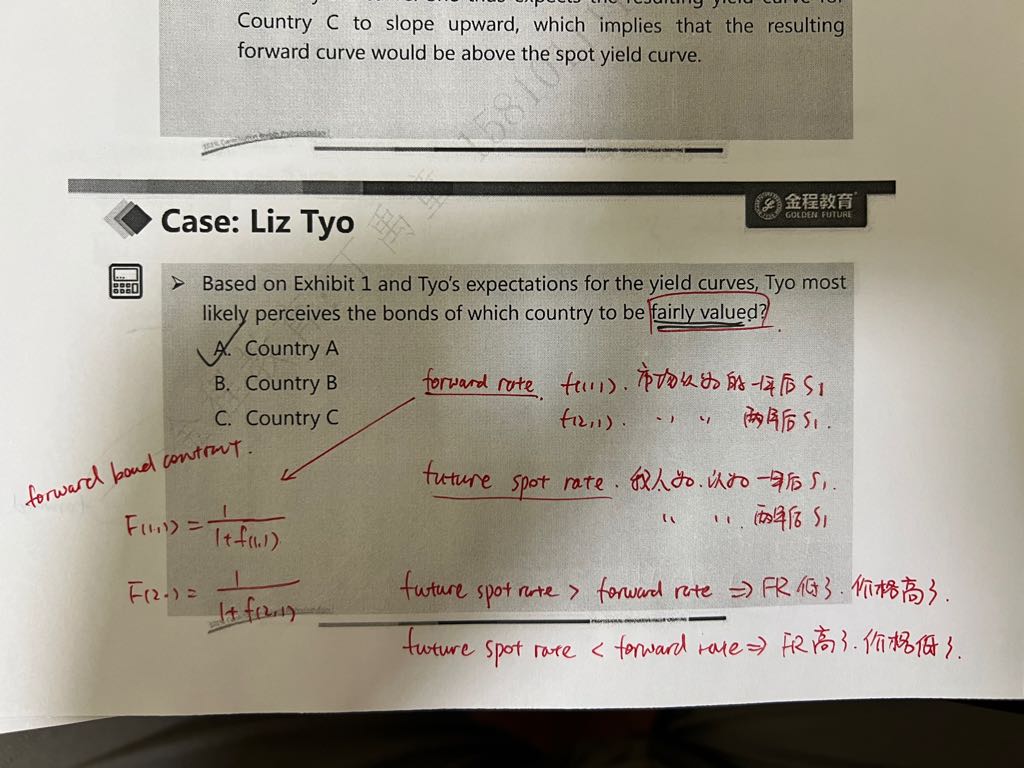 Country C to slope upward, which implies that the resulting
forward curve would be above the spot yield curve.
Case: Liz Tyo
金程教育
GOLDEN FUTURE
➤ Based on Exhibit 1 and Tyo's expectations for the yield curves, Tyo most
likely perceives the bonds of which country to be fairly valued?
A. Country A
B. Country B
C. Country C
forward rate. f(1,1). 市场认为的一年后 S1
f(2,1). 〃 〃 两年后 S1.
forward bond contract.
future spot rate. 我认为.认为一年后 S1.
〃 〃. 两年后 S1
F(1,1) = 1/1+f(1,1)
F(2,1) = 1/1+f(2,1)
future spot rate > forward rate ⇒ FR低了.价格高了.
future spot rate < forward rate ⇒ FR高了.价格低了.